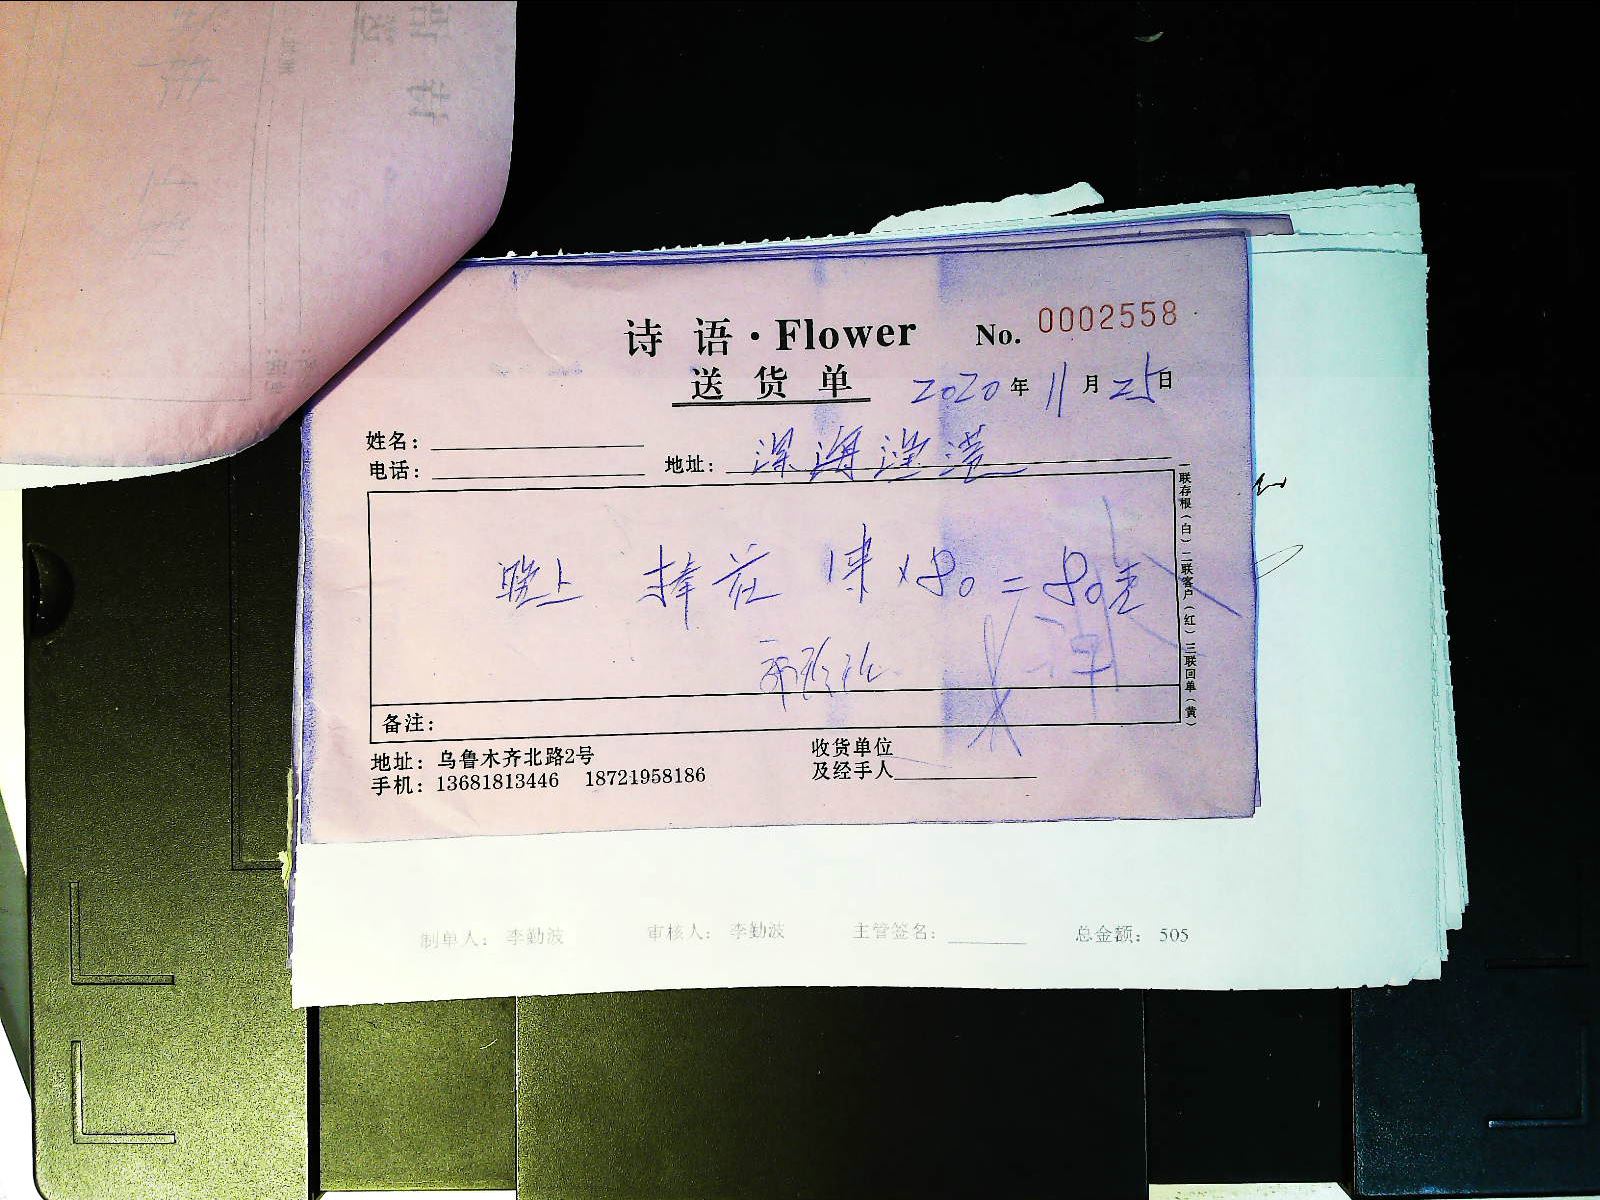 诗 语·Flower No. 0002558
送 货 单 2020年11月25日
姓名：
电话： 地址：深海渔港
晚上 捧花 1束×80=80元
备注：
地址：乌鲁木齐北路2号 收货单位
手机：13681813446 18721958186 及经手人
一联存根（白）二联客户（红）三联回单（黄）
制单人： 李勤波 审核人： 李勤波 主管签名： 总金额： 505